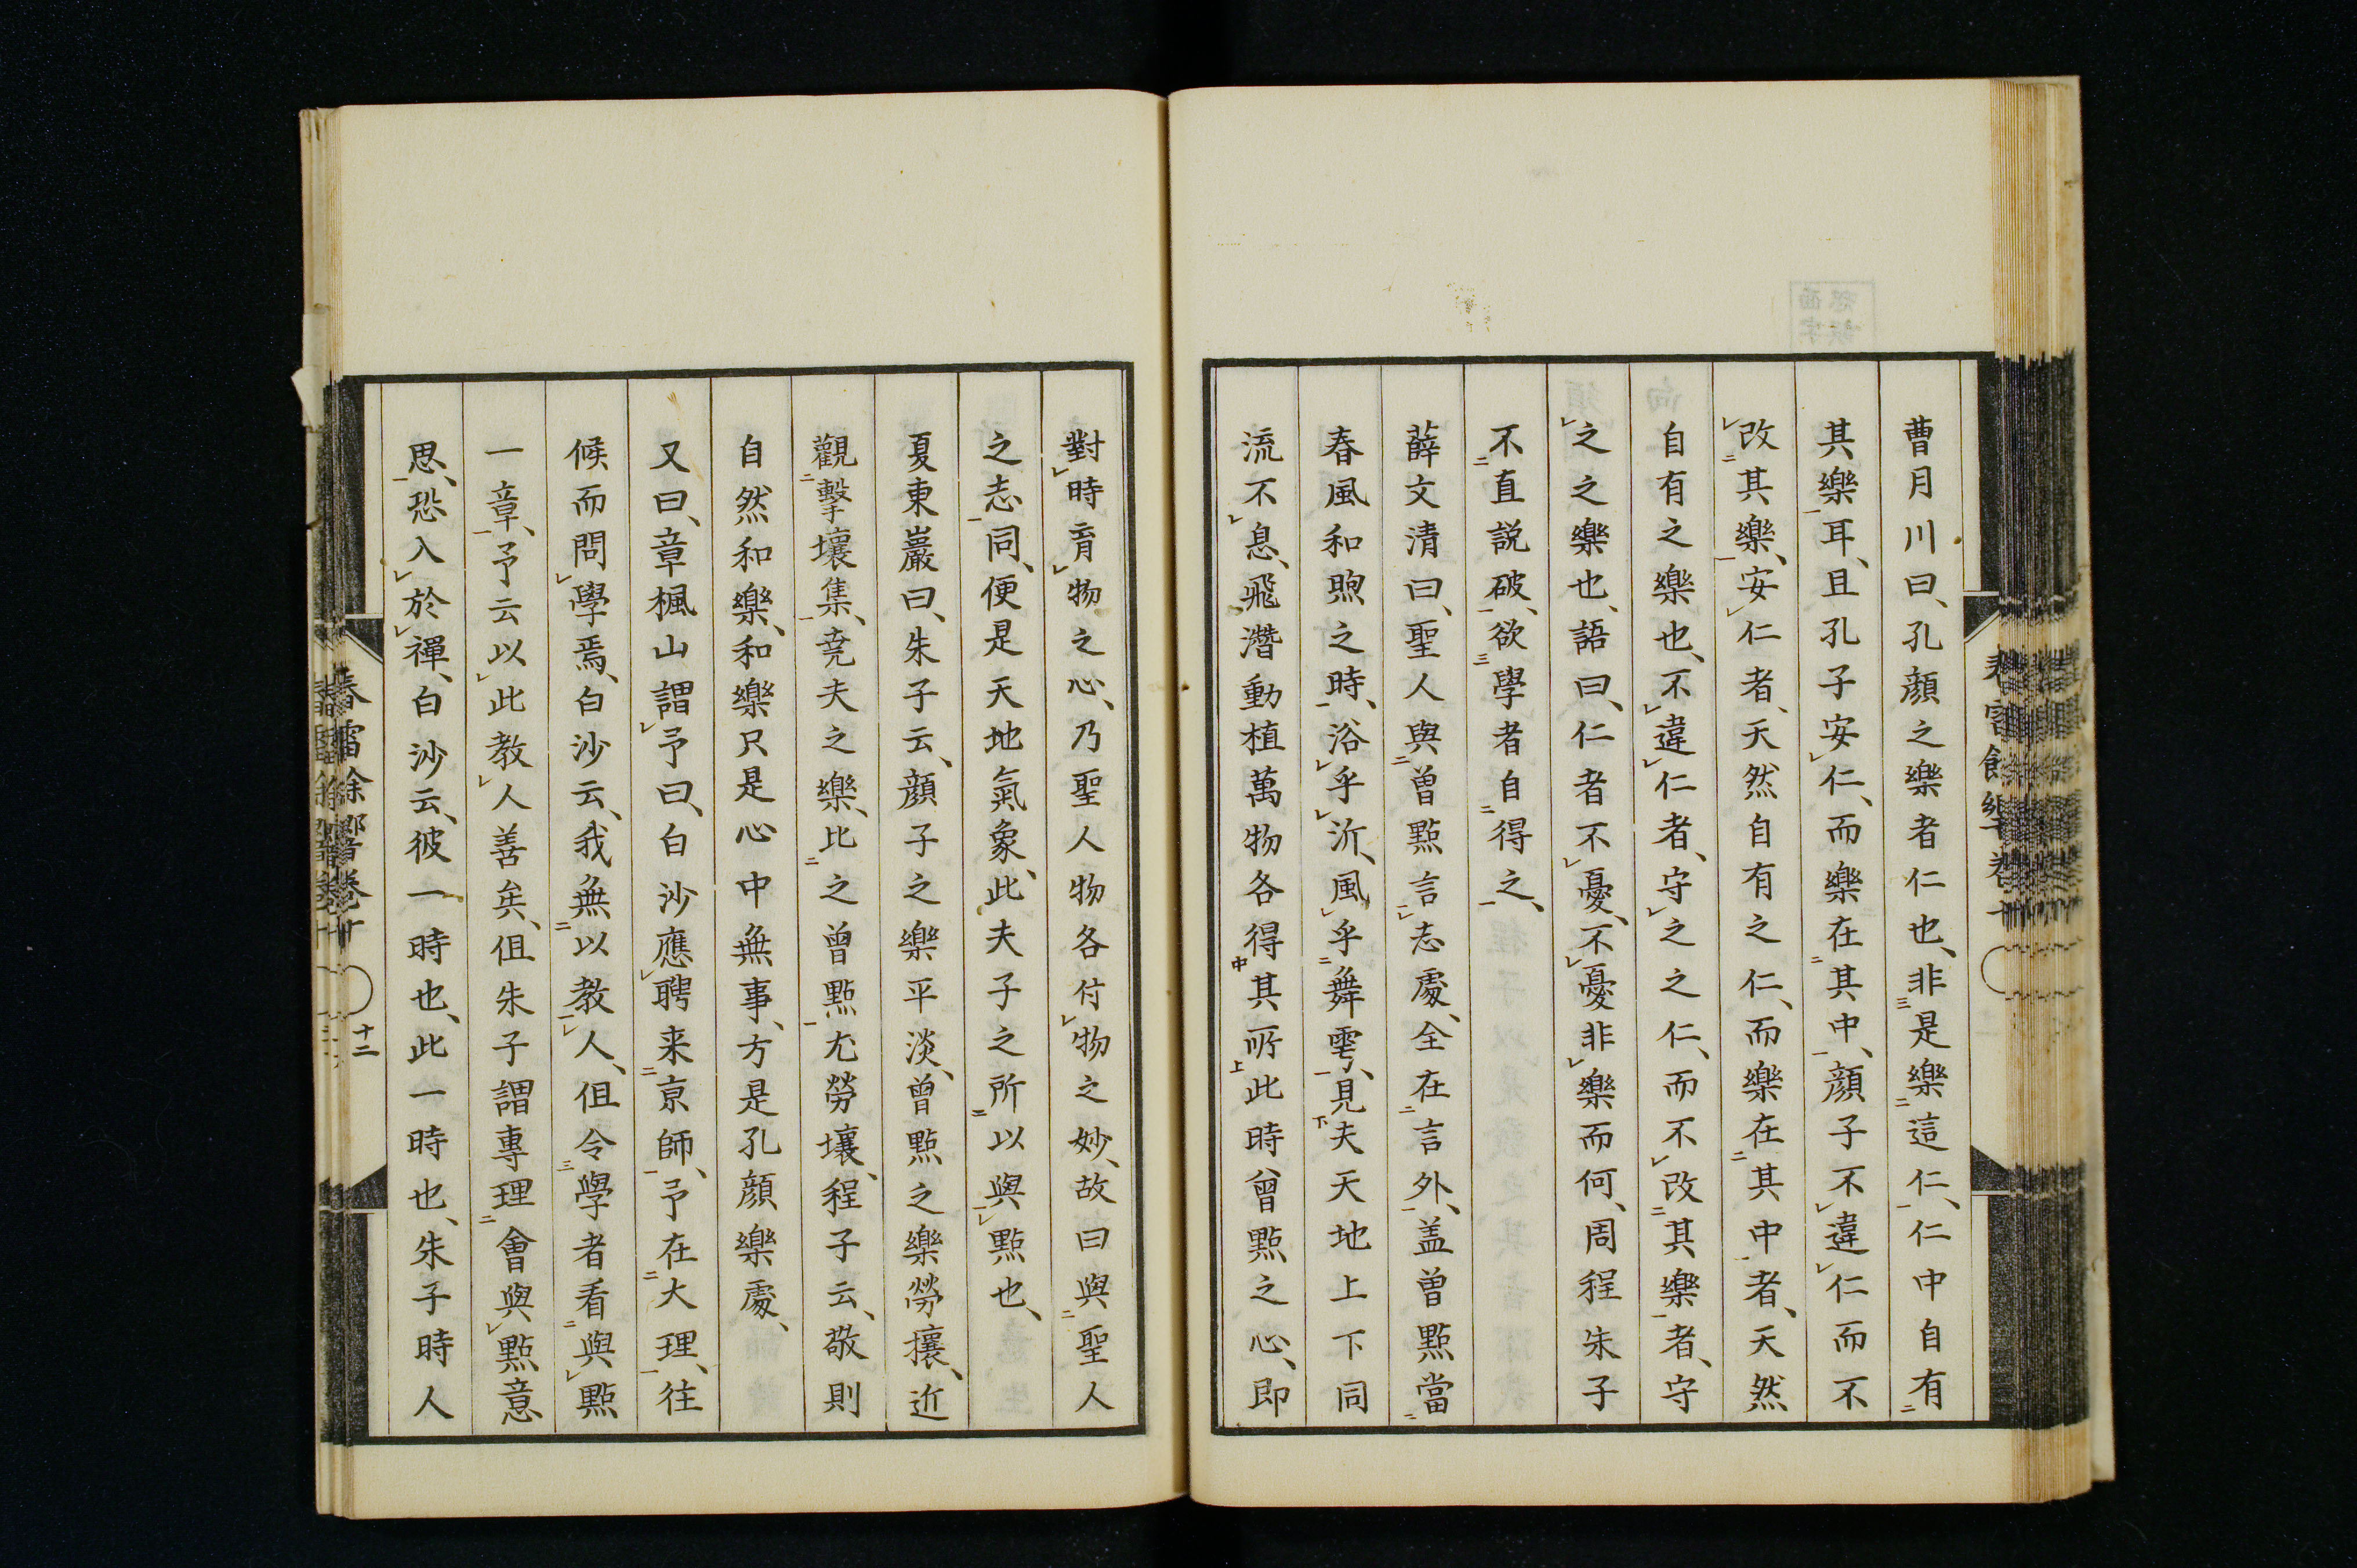 曹月川曰、孔顔之樂者仁也、非是樂這仁、仁中自有
其樂耳、且孔子安仁、而樂在其中、顔子不違仁而不
改其樂、安仁者、天然自有之仁、而樂在其中者、天然
自有之樂也、不違仁者、守之之仁、而不改其樂者、守
之之樂也、語曰、仁者不憂、不憂非樂而何、周程朱子
不直説破、欲學者自得之、
薛文清曰、聖人與曾點言志處、全在言外、盖曾點當
春風和煦之時、浴乎沂、風乎舞雩、見夫天地上下同
流不息、飛潛動植萬物各得其所此時曾點之心、即
對時育物之心、乃聖人物各付物之妙、故曰與聖人
之志同、便是天地氣象、此夫子之所以與點也、
夏東巖曰、朱子云、顔子之樂平淡、曾點之樂勞攘、近
觀擊壤集、尭夫之樂、比之曾點尤勞壤、程子云、敬則
自然和樂、和樂只是心中無事、方是孔顔樂處、
又曰、章楓山謂予曰、白沙應聘来京師、予在大理、往
候而問學焉、白沙云、我無以教人、但令學者看與點
一章、予云以此教人善矣、但朱子謂專理會與點意
思、恐入於禪、白沙云、彼一時也、此一時也、朱子時人
十二